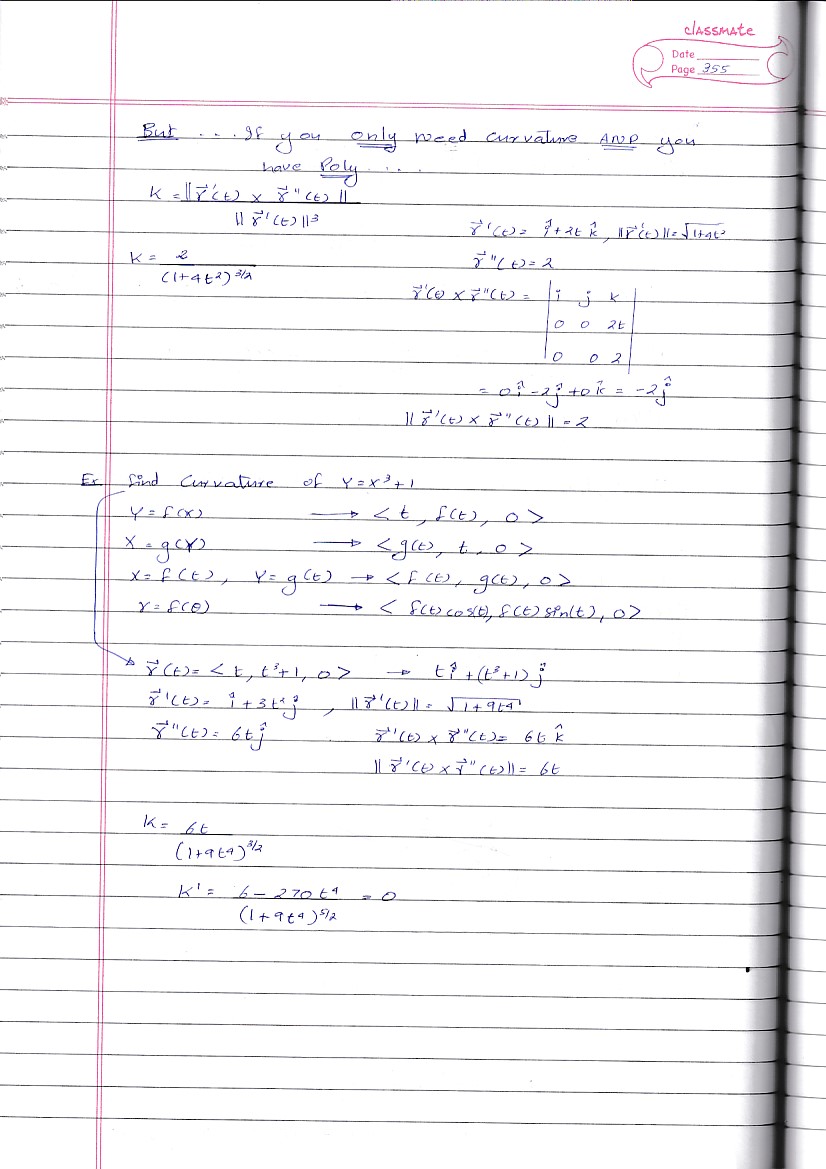 classmate
Date
Page 355
But ... If you only need curvature AND you
have Poly ....
K = ||r⃗'(t) × r⃗''(t)||
||r⃗'(t)||³
r⃗'(t) = î + 2t k̂, ||r⃗'(t)|| = √1+4t²
K = 2
(1+4t²)^3/2
r⃗''(t) = 2
r⃗'(t) × r⃗''(t) = | i j k |
| 0 0 2t |
| 0 0 2 |
= 0î - 2ĵ + 0k̂ = -2ĵ
||r⃗'(t) × r⃗''(t)|| = 2
Ex find curvature of Y = x³+1
Y = f(x) → < t, f(t), 0 >
X = g(Y) → < g(t), t, 0 >
x = f(t), Y = g(t) → < f(t), g(t), 0 >
r = f(θ) → < f(t)cos(t), f(t) sin(t), 0 >
r⃗(t) = < t, t³+1, 0 > → tî + (t³+1)ĵ
r⃗'(t) = î + 3t²ĵ, ||r⃗'(t)|| = √1+9t⁴
r⃗''(t) = 6tĵ r⃗'(t) × r⃗''(t) = 6t k̂
||r⃗'(t) × r⃗''(t)|| = 6t
K = 6t
(1+9t⁴)^3/2
K' = 6 - 270t⁴ = 0
(1+9t⁴)^5/2